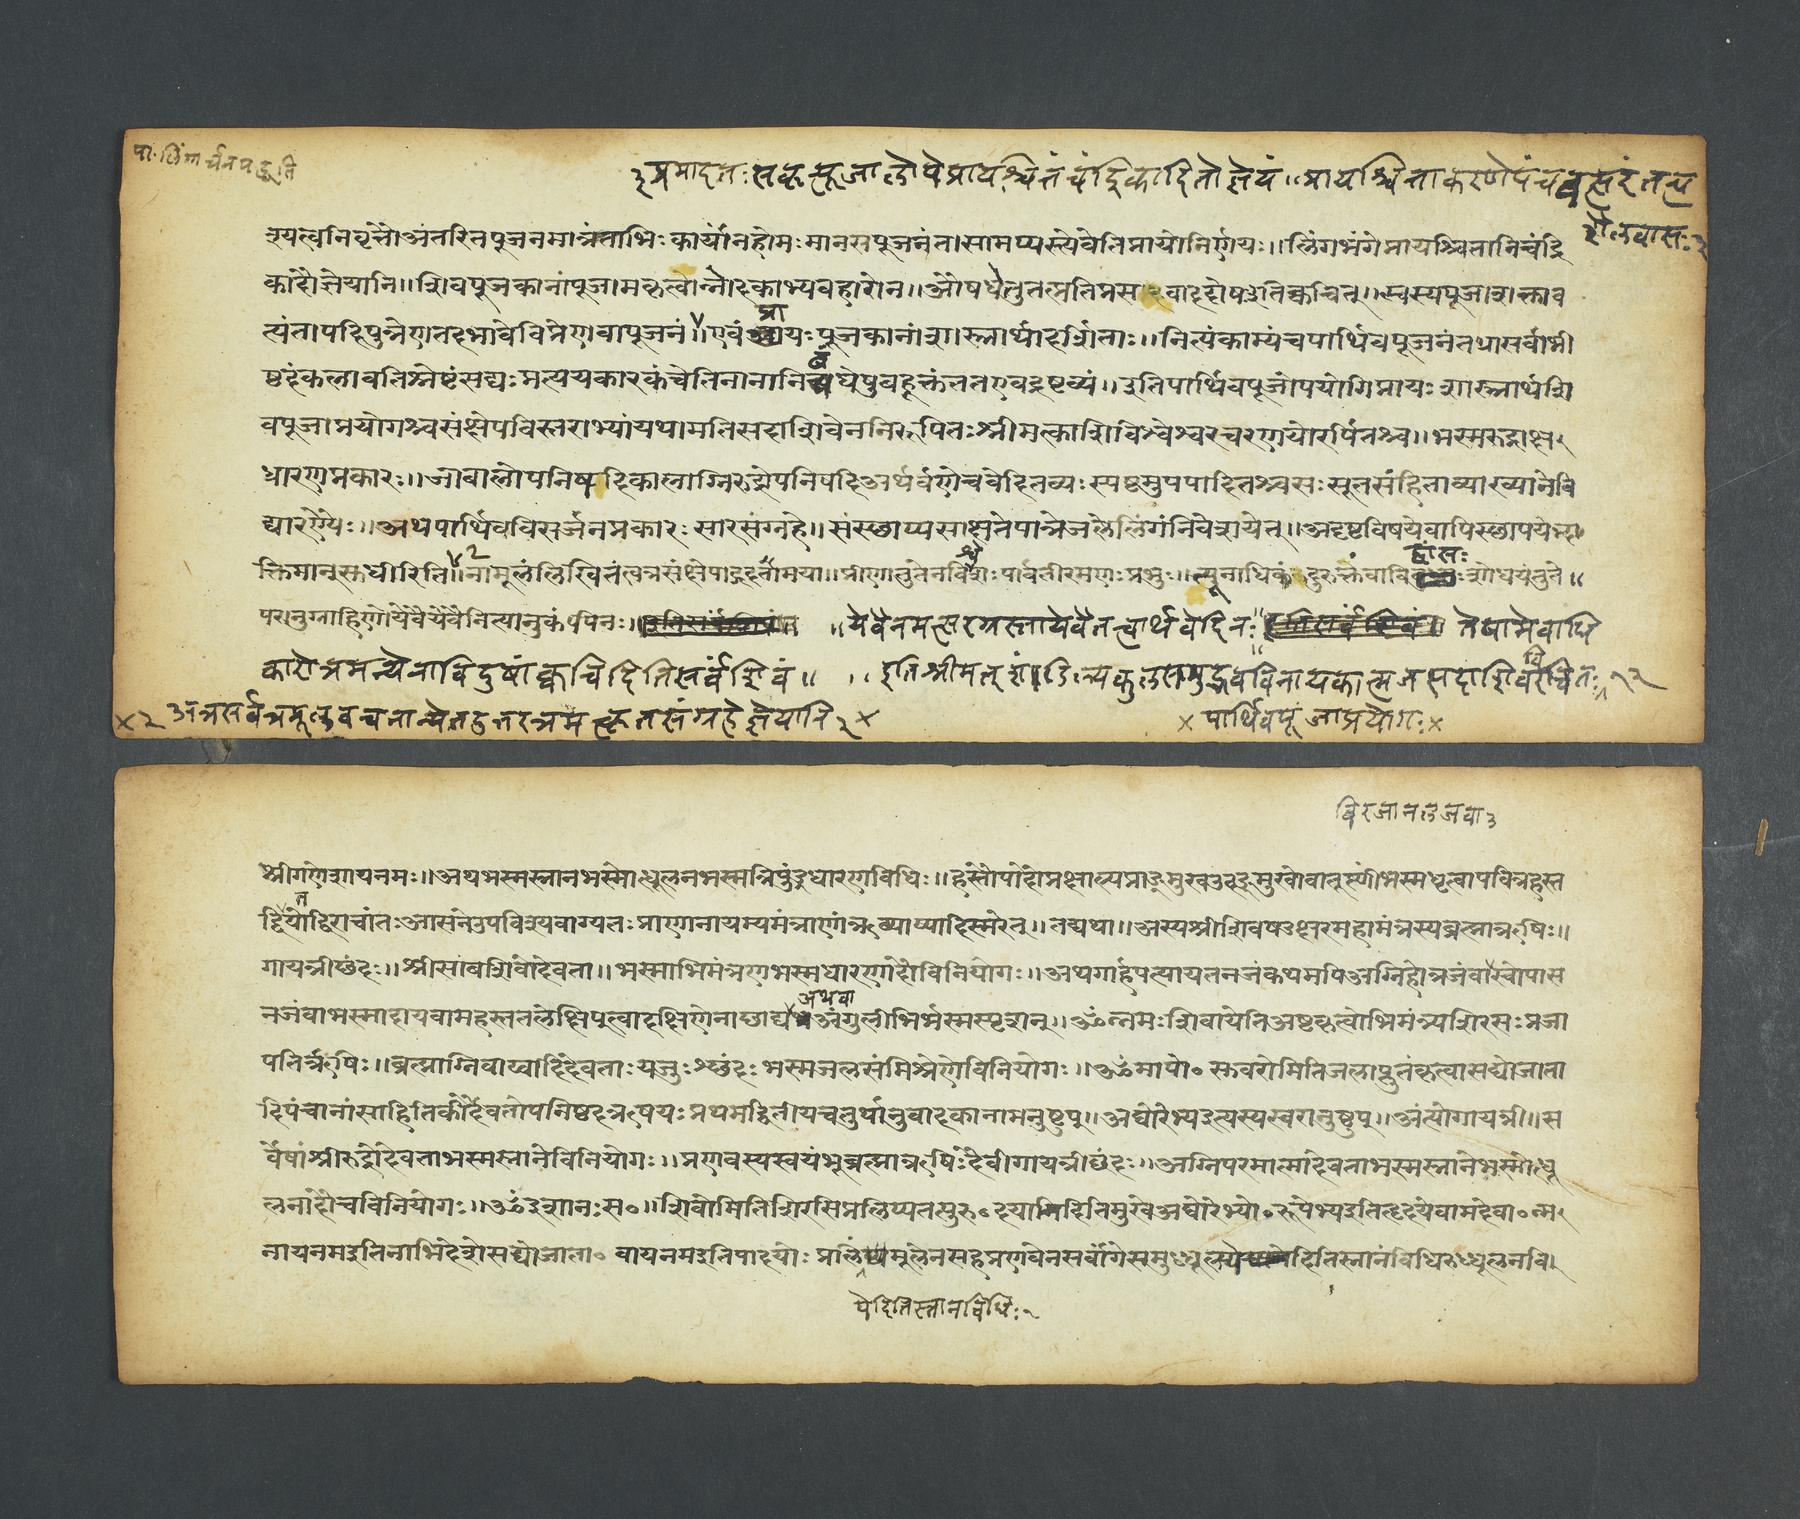 पा. लिंगार्चनपद्धति
३ प्रमादतः सकृत्पूजालोपे प्रायश्चित्तं चंद्रिकादितो ज्ञेयं ॥ प्रायश्चित्ताकरणे पंच
श्यत्वनिवृत्तौ अंतरितपूजनमात्रं ताभिः कार्यां न होमः मानसपूजनं तासामप्यस्त्येवेति प्रायो निर्णयः ॥ लिंगभंगे प्रायश्चित्तानि चंद्रि
कादौ ज्ञेयानि ॥ शिवपूजकानां पूजामकृत्वान्नोदकाभ्यवहारो न ॥ औषधे तु तत्प्रतिप्रसवाददोष इति क्वचित् ॥ स्वस्य पूजाशक्ताव
त्यंतापदि पुत्रेण तदभावे विप्रेण वा पूजनं ॥ एवं प्रायः पूजकानां शास्त्रार्था दर्शिताः ॥ नित्यं काम्यं च पार्थिवपूजनं तथा सर्वाभी
ष्टदं कलावतिश्रेष्टं सद्यः प्रत्ययकारकं चेति नानानिबंधेषु बहूक्तं तत एव द्रष्टव्यं ॥ इति पार्थिवपूजोपयोगि प्रायः शास्त्रार्थशि
वपूजाप्रयोगश्च संक्षेपविस्तराभ्यां यथामति सदाशिवेन निरूपितः श्रीमत्काशिविश्वेश्वरचरणयोरर्पितश्च ॥ भस्मरुद्राक्ष
धारणप्रकारः ॥ जाबालोपनिषदि कालाग्निरुद्रोपनिषदि अथर्वणे च वेदितव्यः स्पष्टमुपपादितश्च सः सूतसंहिताव्याख्याने वि
द्यारण्यैः ॥ अथ पार्थिवविसर्जनप्रकारः सारसंग्रहे ॥ संस्छाप्य साक्षते पात्रे जले लिंगं निवेशयेत् ॥ अदृष्टविषये वापि स्छापयेद्भ
क्तिमान् सुधीरिति ॥ नामूलं लिखितं त्वत्र संक्षेपाद्रहितं मया ॥ प्रीणातु तेन विश्वेशः पार्वतीरमणः प्रभुः ॥ न्यूनाधिकं दुरुक्तं वा विद्वांसः शोधयंतु ते ॥
परानुग्राहिणो ये वै ये वै नित्यानुकंपिनः ॥ ये वै नमत्सरग्रस्ता ये वै तत्त्वार्थवेदिनः ॥ तेषामेवाधि
कारो त्र मन्ये नाविदुषां क्वचिदिति सर्वं शिवं ॥ इति श्रीमत् विनायकात्मज सदाशिवविरचितः
अत्र सर्वत्र मूलवचनान्ये मत्कृतसंग्रहे ज्ञेयानि २ ×
× पार्थिवपूजाप्रयोगः ×
श्रीगणेशाय नमः ॥ अथ भस्मस्नानभस्मोत्धूलनभस्मत्रिपुंड्रधारणविधिः ॥ हस्तौ पादौ प्रक्षाल्य प्राङ्मुख उदङ्मुखो वा तूष्णीं भस्म धृत्वा पवित्रहस्त
द्वितयो द्विराचांतः आसने उपविश्य वाग्यतः प्राणानायम्य मंत्राणां ऋष्याद्यादि स्मरेत् ॥ तद्यथा ॥ अस्य श्रीशिवषडक्षरमहामंत्रस्य ब्रह्मा ऋषिः ॥
गायत्री छंदः ॥ श्रीसांबशिवो देवता ॥ भस्माभिमंत्रणभस्मधारणादौ विनियोगः ॥ अथ गार्हपत्यायतनजं कथमपि अग्निहोत्रजं वा स्वोपास
नजं वा भस्मादाय वामहस्ततले क्षिपुत्वा दक्षिणेनाछाद्य अथवा अंगुलीभिर्भस्म स्पृशन् ॥ ॐ नमः शिवायेति अष्टकृत्वोभिमंत्र्य शिरसः प्रजा
पतिर्ऋषिः ॥ ब्रह्माग्निवाय्वादि देवताः यजुः श्छंदः भस्मजलसंमिश्रणे विनियोगः ॥ ॐमापो० स्तुवरोमिति जलाप्लुतं कृत्वा सद्योजाता
दि पंचानां सांहितिकीर्देवतोपनिषद ऋषयः प्रथमद्वितीयचतुर्थानुवाककानामनुष्टुप् ॥ अघोरेभ्य इत्यस्य स्वरानुष्टुप् ॥ अंत्यो गायत्री ॥ स
र्वेषां श्रीरुद्रो देवता भस्मस्नाने विनियोगः ॥ प्रणवस्य स्वयंभूब्रह्मा ऋषिः दैवी गायत्री छंदः ॥ अग्निपरमात्मा देवता भस्मस्नाने भस्मोत्धू
लनादौ च विनियोगः ॥ ॐ इशानः स० ॥ शिवोमिति शिरसि प्रलिप्य तत्पुरु० दयादिति मुखे अघोरेभ्यो० रूपेभ्य इति हृदये वामदेवा० न्म
नाय नम इति नाभिदेशे सद्योजाता० वाय नम इति पादयोः प्रालिप्य मूलेन सह प्रणवेन सर्वांगे समुध्धूल विधि उध्धूलनवि
येदिति स्नानविधिः २